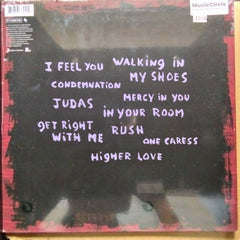 MusicCircle
I FEEL YOU WALKING IN
MY SHOES
CONDEMNATION
MERCY IN YOU
JUDAS
IN YOUR ROOM
GET RIGHT
WITH ME
RUSH
ONE CARESS
HIGHER LOVE